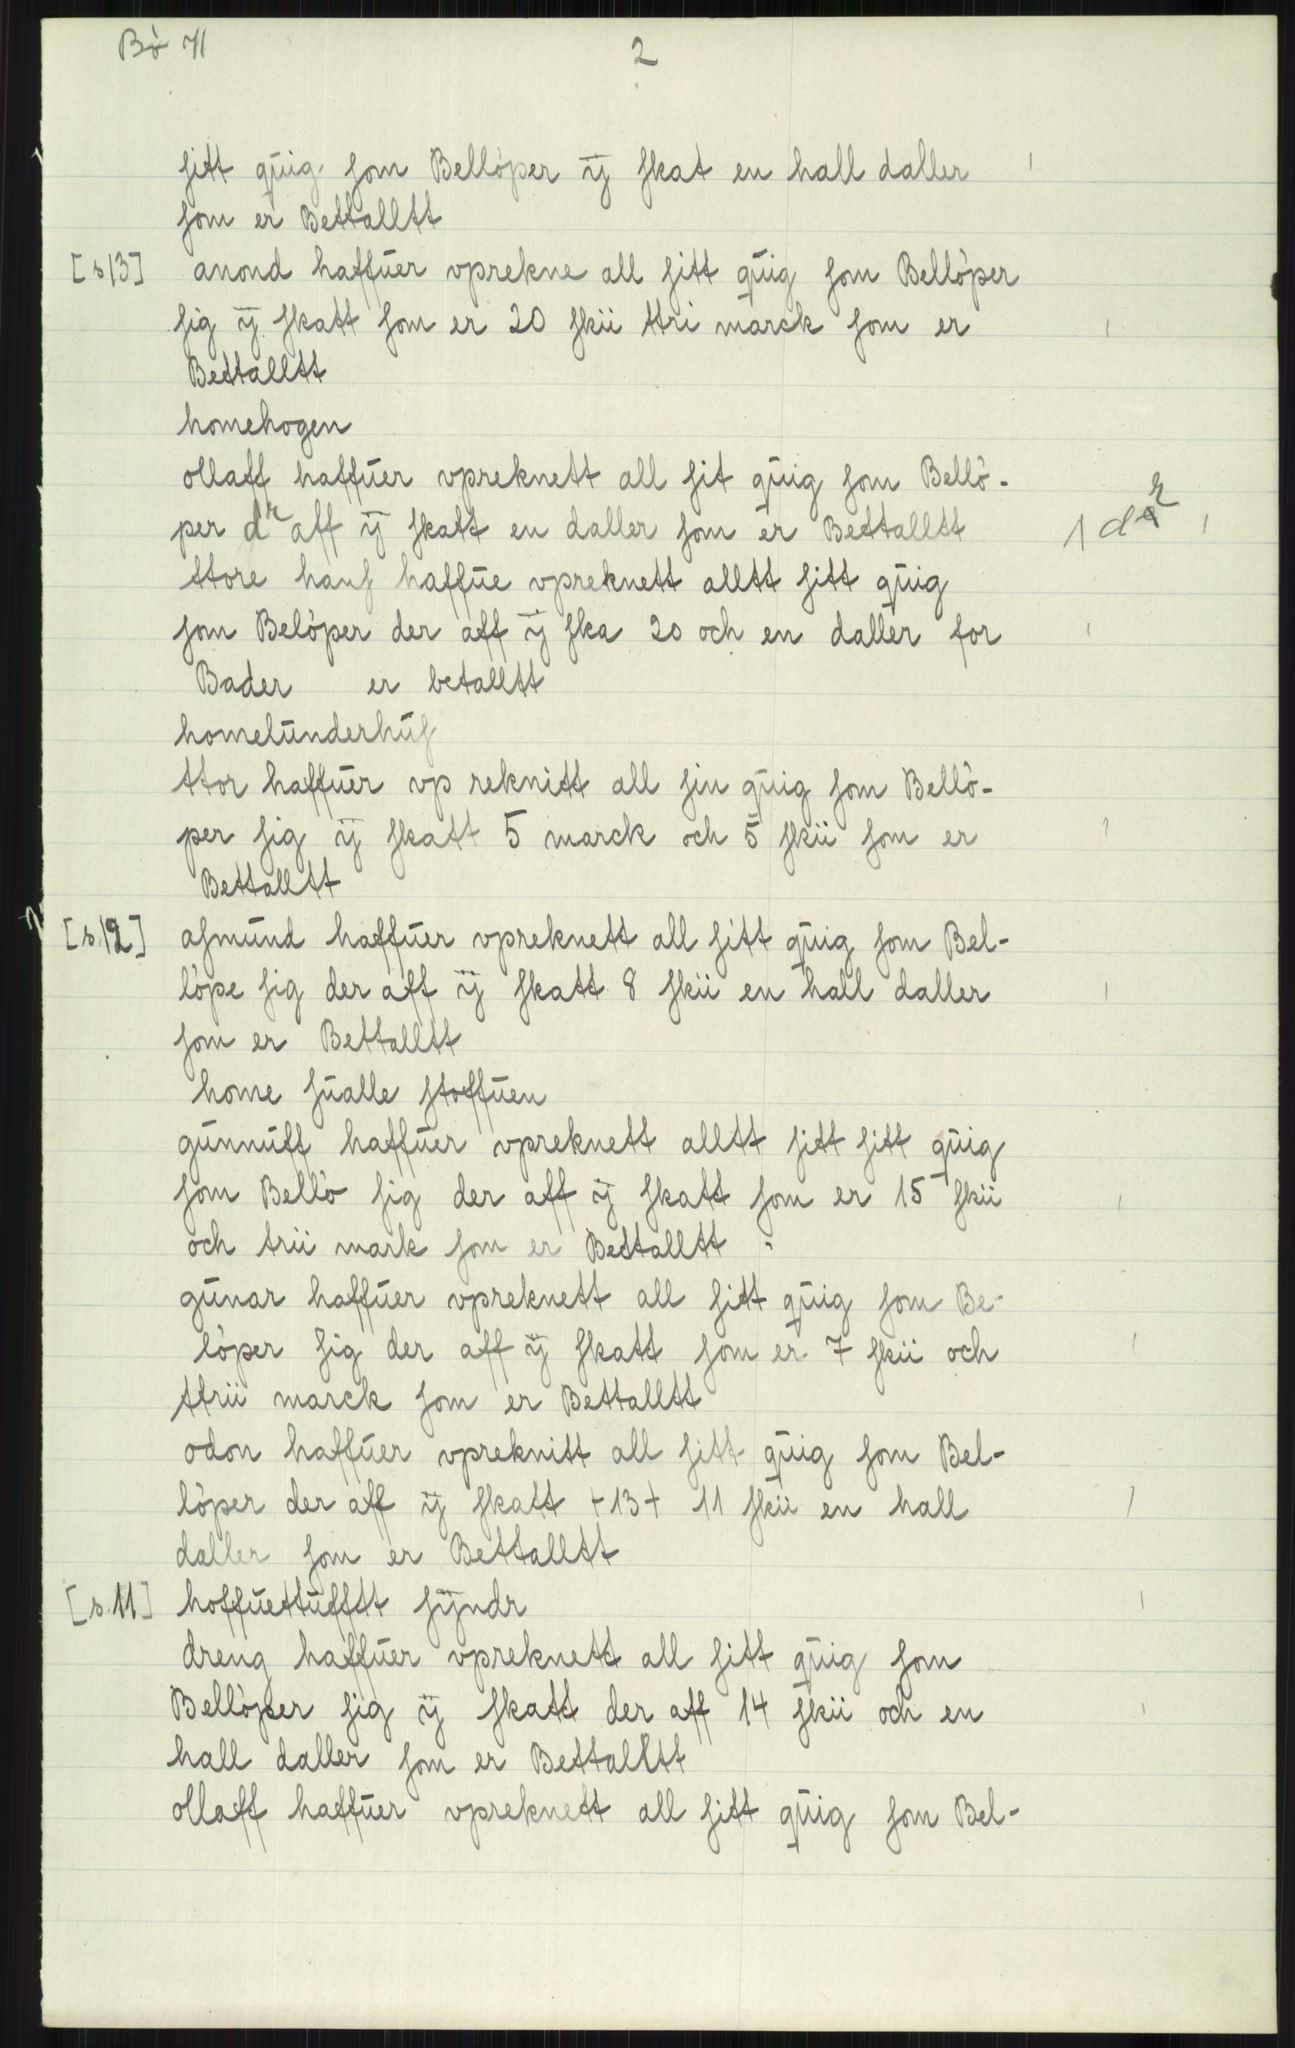 Bö 71
2
sitt quig som Bellöper ÿ skat en hall daller
som er Bettalltt
[s13] anond haffuer vprekne all sitt quig som Bellöper
sig ÿ skatt som er 20 skii ttri marck som er
Bettalltt
homehogen
ollaff haffuer vpreknett all sit quig som Bellö-
per dr aff ÿ skatt en daller som er Bettalltt 1 dr
ttore hans haffue vpreknett alltt sitt quig
som Belöper der aff ÿ ska 20 och en daller for
Bader er betalltt
homelunderhus
ttor haffuer vp reknitt all sin quig som Bellö-
per sig ÿ skatt 5 marck och 5 skii som er
Bettalltt
[s.12] asmund haffuer vpreknett all sitt quig som Bel-
löpe sig der aff ÿ skatt 8 skii en hall daller
som er Bettalltt
home sualle stoffuen
gunnuff haffuer vpreknett alltt sitt sitt quig
som Bellö sig der aff ÿ skatt som er 15 skii
och trii mark som er Bettalltt
gunar haffuer vpreknett all sitt quig som Be-
löper sig der aff ÿ skatt som er 7 skii och
ttrii marck som er Bettalltt
odon haffuer vpreknitt all sitt quig som Bel-
löper der aff ÿ skatt +13+ 11 skii en hall
daller som er Bettalltt
[s.11] hoffuettufftt sÿndr
dreng haffuer vpreknett all sitt quig som
Bellöper sig ÿ skatt der aff 14 skii och en
hall daller som er Bettalltt
ollaff haffuer vpreknett all sitt quig som Bel-